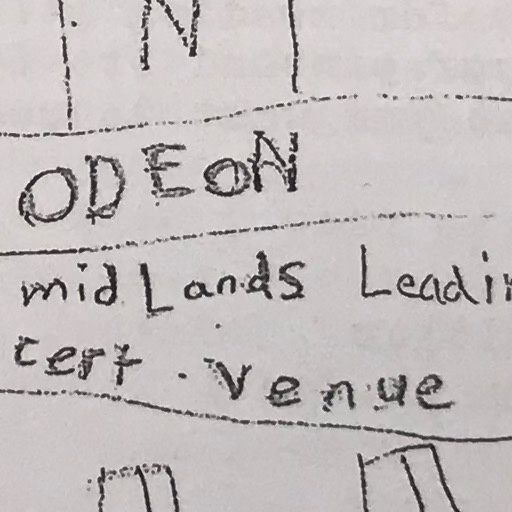 N
ODEON
midLands Leadin
cert. venue